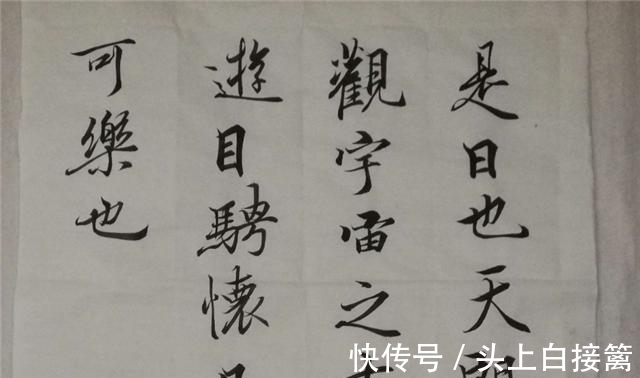 是日也天
觀宇宙之
遊目騁懷
可樂也
快传号 / 头上白接篱